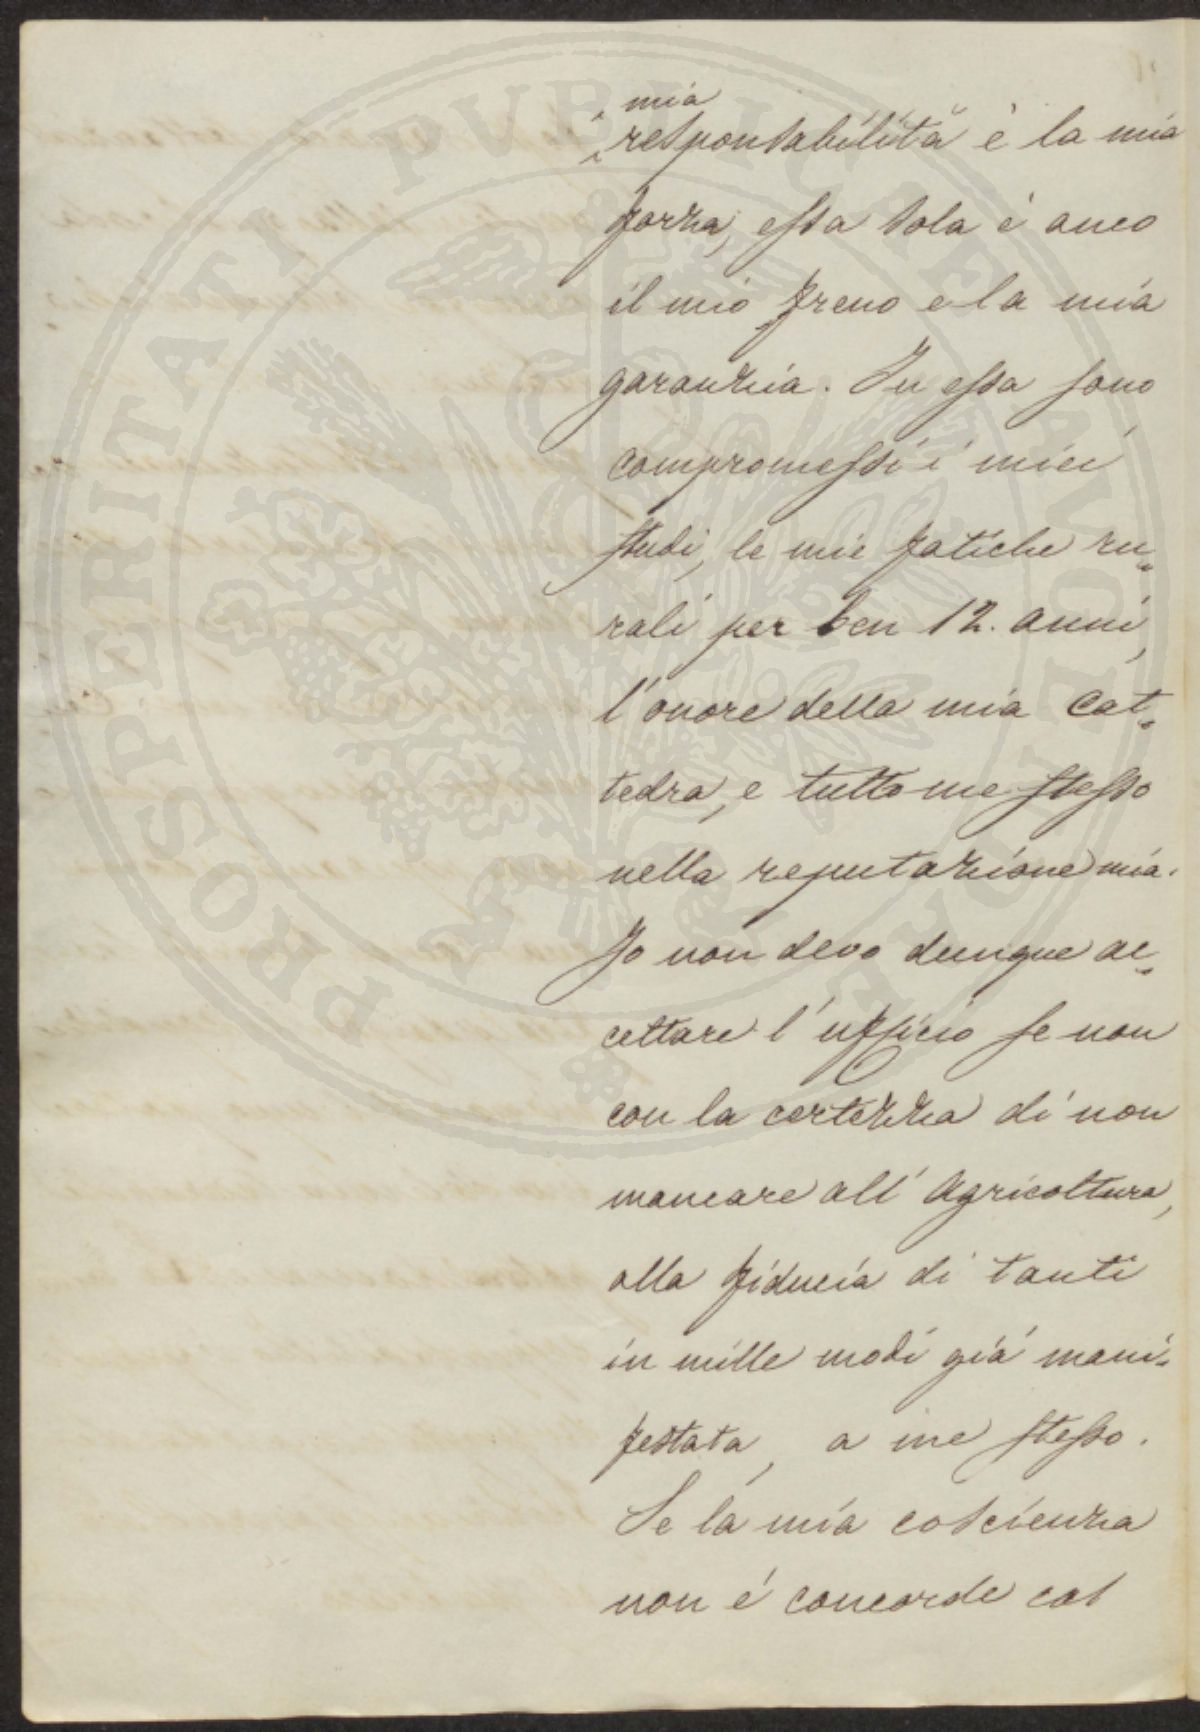 mia
responsabilità è la mia
forza, essa sola è anco
il mio freno e la mia
garanzia. In essa sono
compromessi i miei
studi, le mie fatiche ru„
rali per ben 12. anni,
l'onore della mia Cat„
tedra, e tutto me stesso
nella reputazione mia.
Io non devo dunque ac„
cettare l'ufficio se non
con la certezza di non
mancare all'Agricoltura,
alla fiducia di tanti
in mille modi già mani„
festata, a me stesso.
Se la mia coscienza
non è concorde col
PROSPERITATI PVBLICAE AVGENDAE